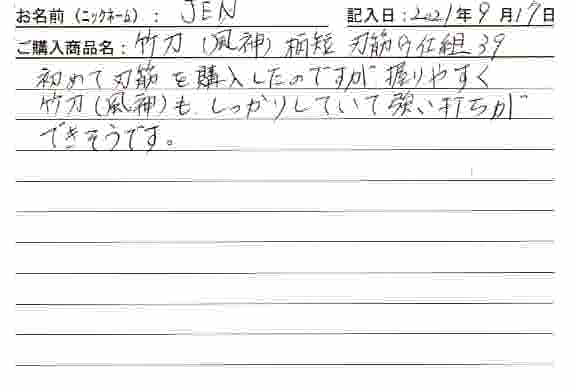 お名前（ニックネーム）： JEN 記入日：2021年9月17日
ご購入商品名：竹刀（風神）柄短 刃筋の仕組39
初めて刃筋を購入したのですが握りやすく
竹刀（風神）も、しっかりしていて強い打ちが
できそうです。